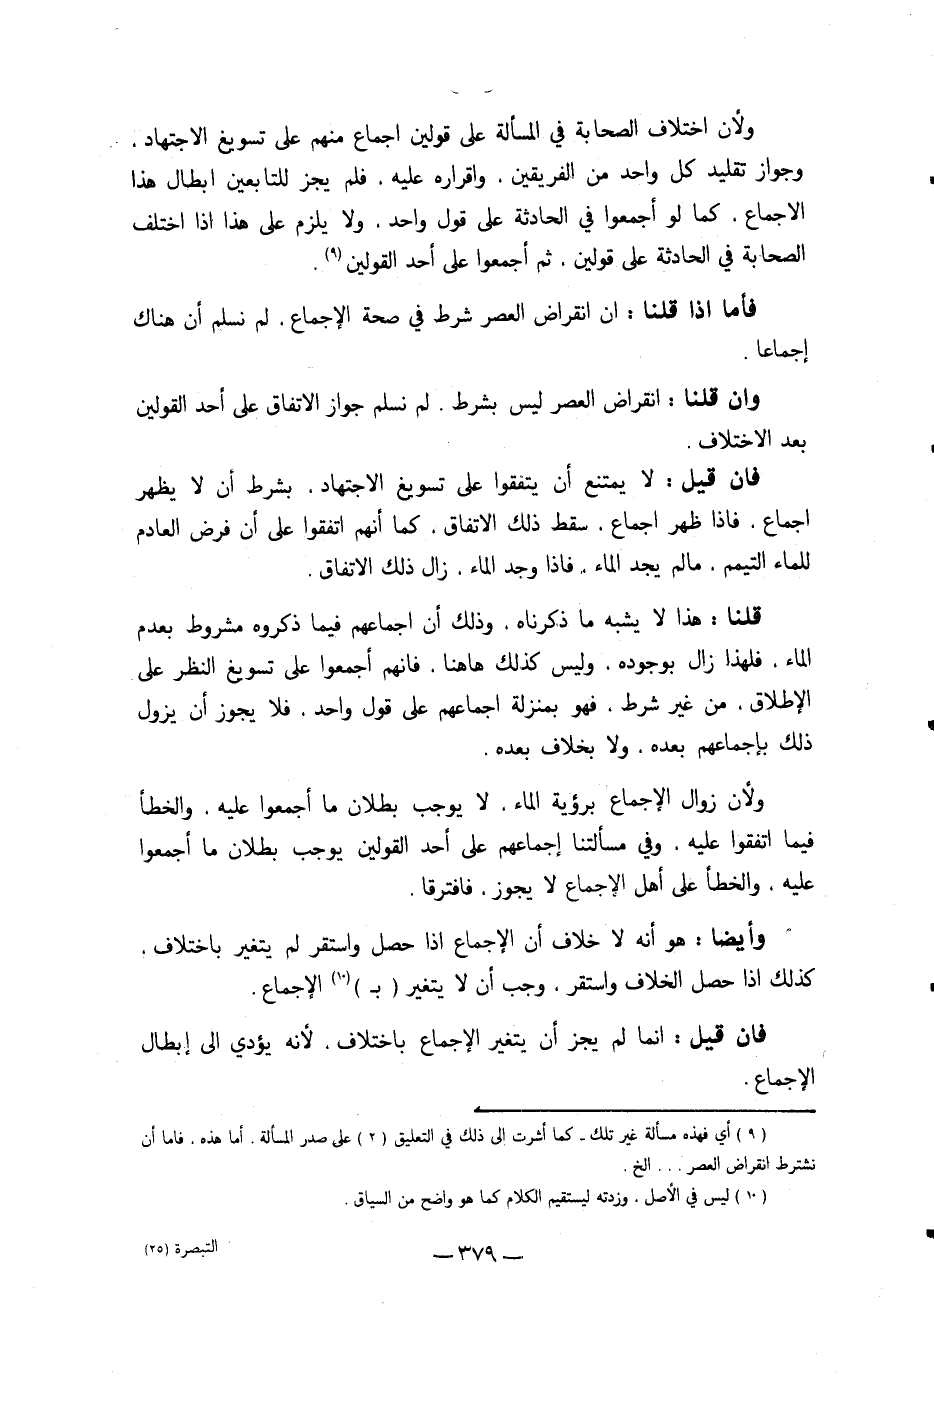 ولأن اختلاف الصحابة في المسألة على قولين اجماع منهم على تسويغ الاجتهاد ،
وجواز تقليد كل واحد من الفريقين ، واقراره عليه ، فلم يجز للتابعين ابطال هذا
الاجماع ، كما لو أجمعوا في الحادثة على قول واحد ، ولا يلزم على هذا اذا اختلف
الصحابة في الحادثة على قولين ، ثم أجمعوا على أحد القولين (٩) .
فأما اذا قلنا : ان انقراض العصر شرط في صحة الإجماع ، لم نسلم أن هناك
إجماعا .
وان قلنا : انقراض العصر ليس بشرط ، لم نسلم جواز الاتفاق على أحد القولين
بعد الاختلاف .
فان قيل : لا يمتنع أن يتفقوا على تسويغ الاجتهاد ، بشرط أن لا يظهر
اجماع ، فاذا ظهر اجماع ، سقط ذلك الاتفاق ، كما أنهم اتفقوا على أن فرض العادم
للماء التيمم ، مالم يجد الماء ، فاذا وجد الماء ، زال ذلك الاتفاق .
قلنا : هذا لا يشبه ما ذكرناه ، وذلك أن اجماعهم فيما ذكروه مشروط بعدم
الماء ، فلهذا زال بوجوده ، وليس كذلك هاهنا ، فانهم أجمعوا على تسويغ النظر على
الإطلاق ، من غير شرط ، فهو بمنزلة اجماعهم على قول واحد ، فلا يجوز أن يزول
ذلك بإجماعهم بعده ، ولا بخلاف بعده .
ولأن زوال الإجماع برؤية الماء ، لا يوجب بطلان ما أجمعوا عليه ، والخطأ
فيما اتفقوا عليه ، وفي مسألتنا إجماعهم على أحد القولين يوجب بطلان ما أجمعوا
عليه ، والخطأ على أهل الإجماع لا يجوز ، فافترقا .
وأيضا : هو أنه لا خلاف أن الإجماع اذا حصل واستقر لم يتغير باختلاف ،
كذلك اذا حصل الخلاف واستقر ، وجب أن لا يتغير ( بـ ) (١٠) الإجماع .
فان قيل : انما لم يجز أن يتغير الإجماع باختلاف ، لأنه يؤدي الى إبطال
الإجماع .
( ٩ ) أي فهذه مسألة غير تلك ـ كما أشرت الى ذلك في التعليق ( ٢ ) على صدر المسألة . أما هذه ، فاما أن
نشترط انقراض العصر . . . الخ .
( ١٠ ) ليس في الأصل ، وزدته ليستقيم الكلام كما هو واضح من السياق .
ـ ٣٧٩ ـ
التبصرة (٢٥)